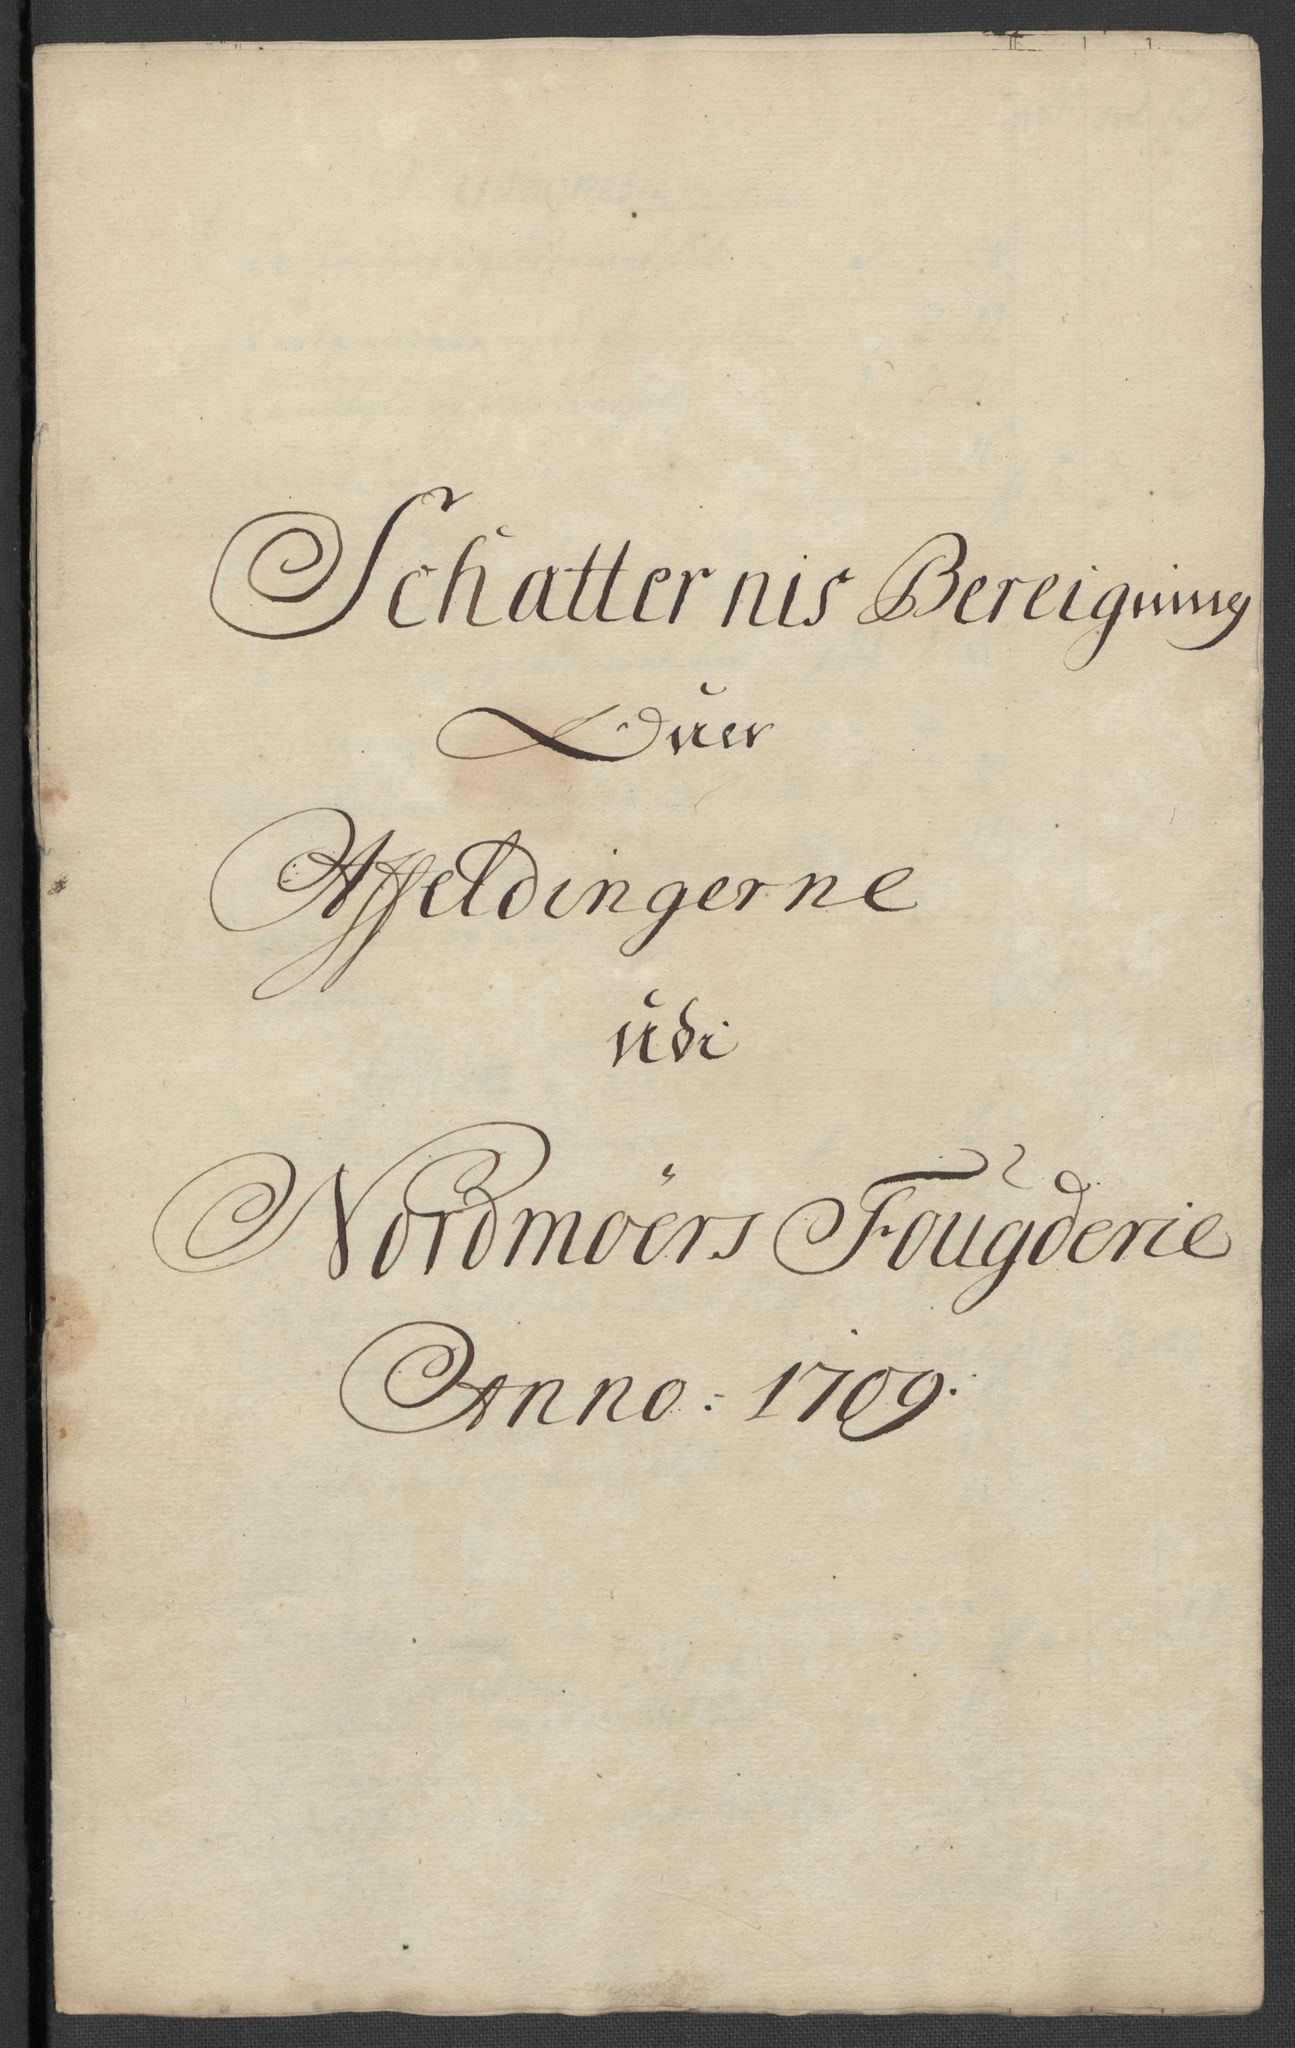 Schatternis Bereigning
Ofuer
Affeldingerne
udi
Nordmöers Fougderie
Anno: 1709.